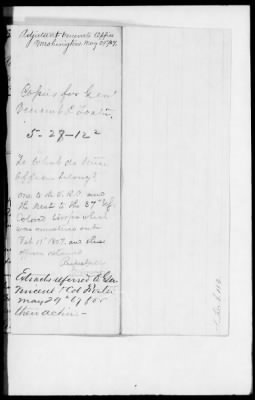 Adjutant General's Office
Washington, May 27/69.
Copies for Gen'
Vincent &
5-28-12
To what do these
Officers belong?
one to the V.R.C. and
the rest to the 37" U.S.
Colored troops which
was mustered out
Feb 11" 1867. and these
officers
Extracts referred to Gen
Vincent & Col
May 29" 69 for
their action-